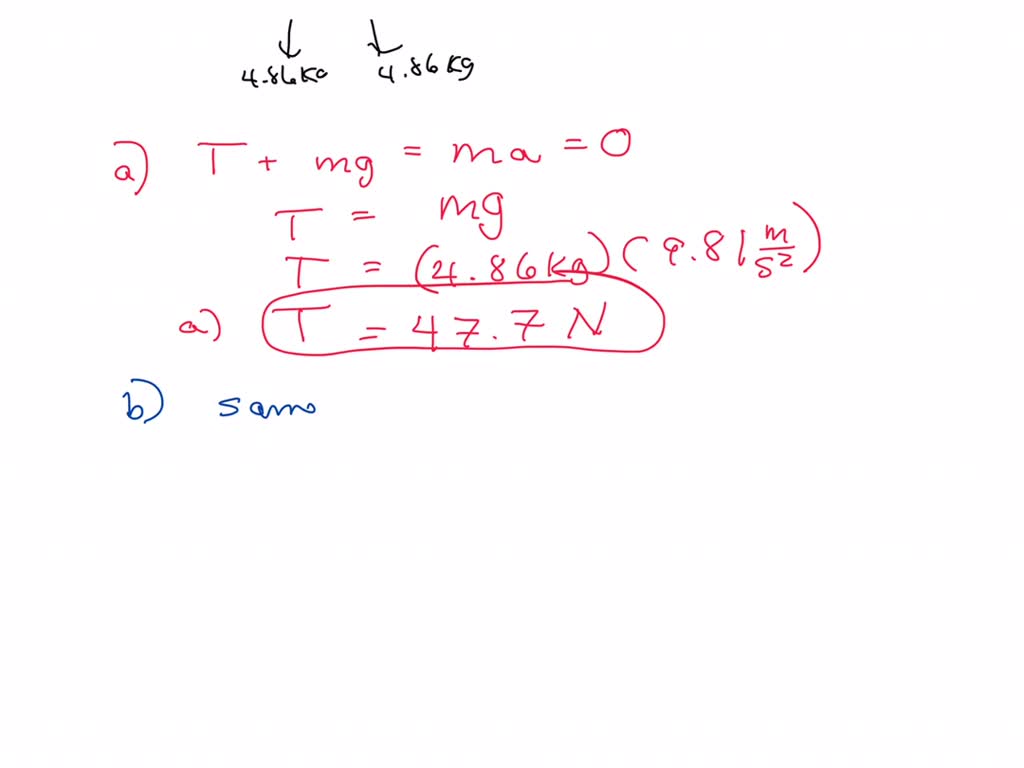 4.86kg 4.86kg
a) T + mg = ma = 0
T = mg
T = (4.86kg)(9.81 m/s²)
a) T = 47.7 N
b) sam